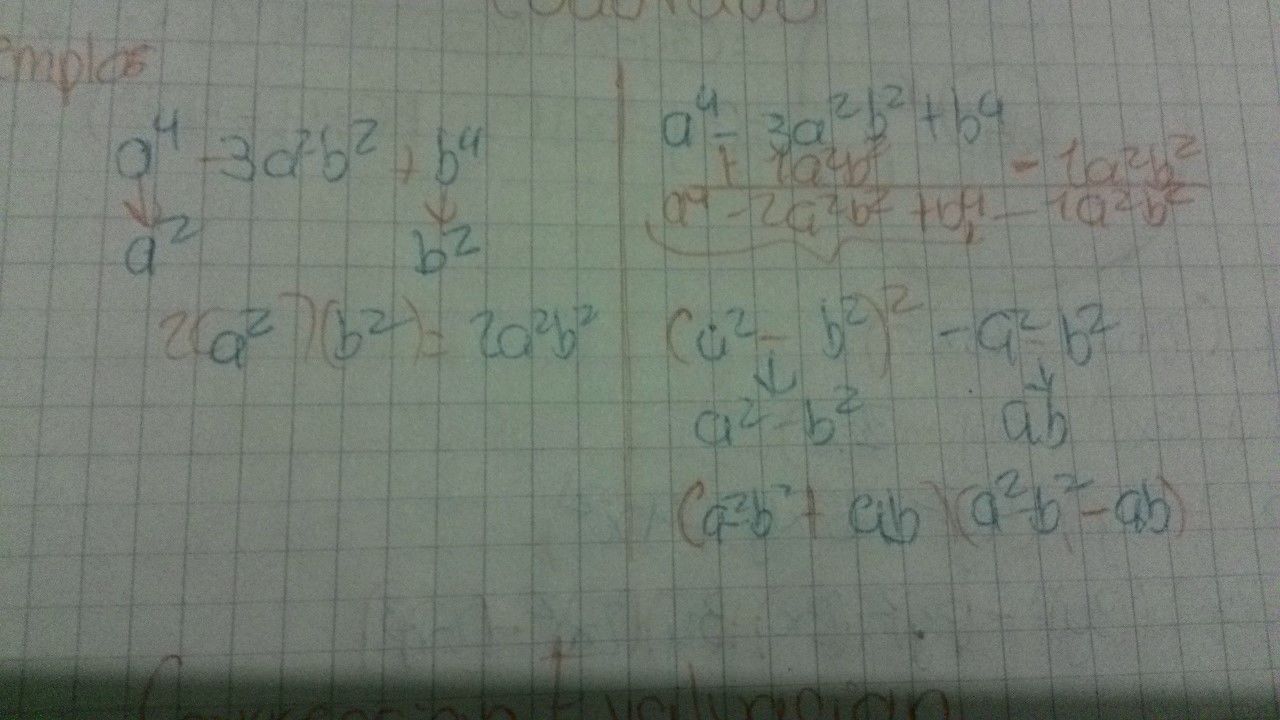 Cuadrado
emplos
a⁴ - 3a²b² + b⁴
a² b²
2(a²)(b²) = 2a²b²
a⁴ - 3a²b² + b⁴
+ 1a²b² - 1a²b²
a⁴ - 2a²b² + b⁴ - 1a²b²
(a² - b²)² - a²b²
a² - b² ab
(a²-b² + ab)(a²-b² - ab)